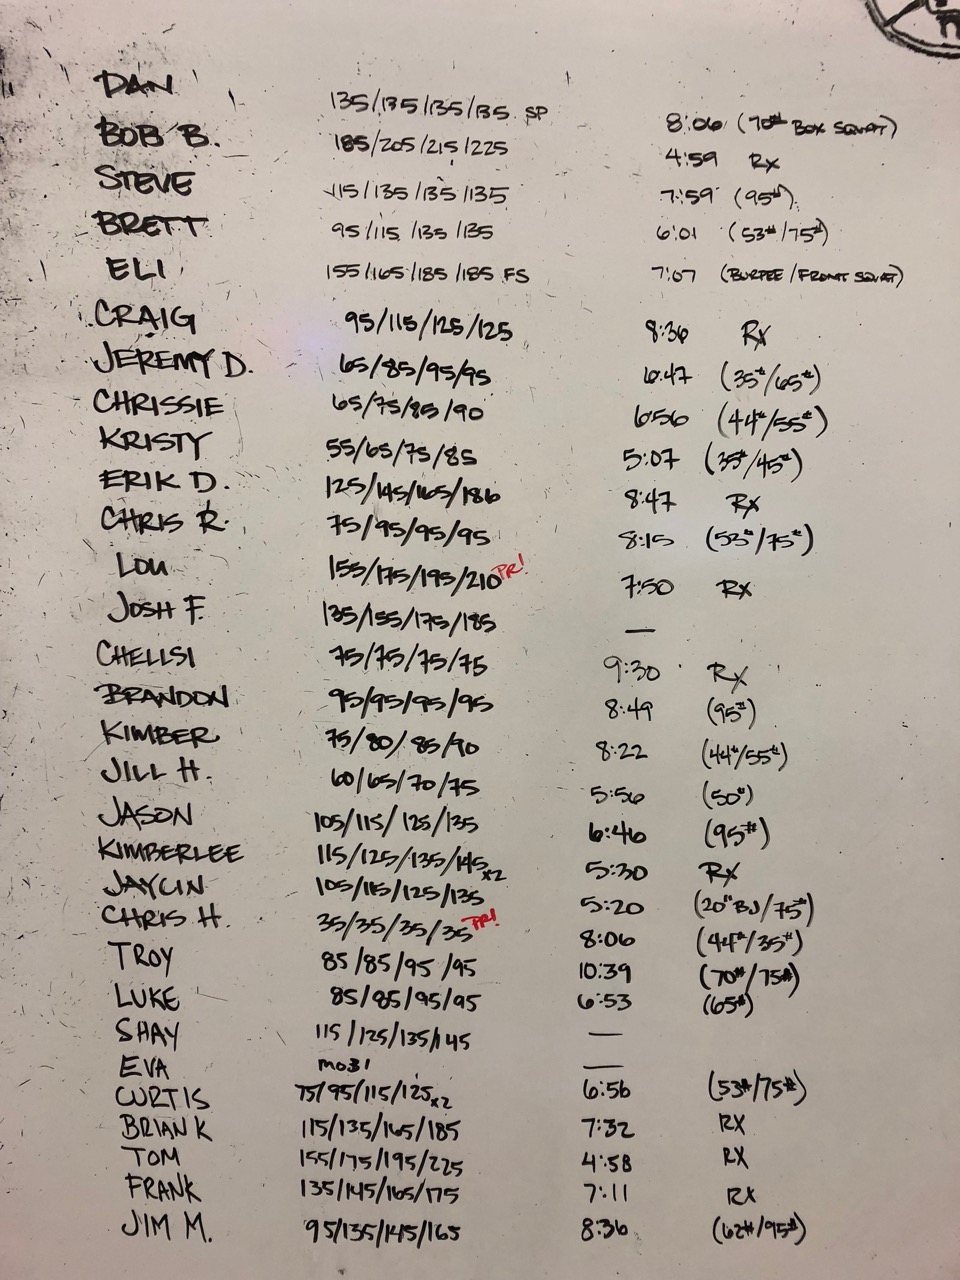 DAN 135/135/135/135 SP 8:06 (70# BOX SQUAT)
BOB B. 185/205/215/225 4:59 RX
STEVE 115/135/135/135 7:59 (95#)
BRETT 95/115/135/135 6:01 (53#/75#)
ELI 155/165/185/185 FS 7:07 (BURPEE/FRONT SQUAT)
CRAIG 95/115/125/125 8:36 RX
JEREMY D. 65/85/95/95 6:47 (35#/65#)
CHRISSIE 65/75/85/90 6:56 (44#/55#)
KRISTY 55/65/75/85 5:07 (35#/45#)
ERIK D. 125/145/165/186 8:47 RX
CHRIS R. 75/95/95/95 8:15 (53#/75#)
LOU 155/175/195/210 PR! 7:50 RX
JOSH F. 135/155/175/185 —
CHELLSI 75/75/75/75 9:30 RX
BRANDON 95/95/95/95 8:49 (95#)
KIMBER 75/80/85/90 8:22 (44#/55#)
JILL H. 60/65/70/75 5:56 (50#)
JASON 105/115/125/135 6:46 (95#)
KIMBERLEE 115/125/135/145 x2 5:30 RX
JAYLIN 105/115/125/135 5:20 (20" BJ/75#)
CHRIS H. 35/35/35/35 PR! 8:06 (44#/35#)
TROY 85/85/95/95 10:39 (70#/75#)
LUKE 85/85/95/95 6:53 (65#)
SHAY 115/125/135/145 —
EVA MOBI —
CURTIS 75/95/115/125 x2 6:56 (53#/75#)
BRIAN K 115/135/165/185 7:32 RX
TOM 155/175/195/225 4:58 RX
FRANK 135/145/165/175 7:11 RX
JIM M. 95/135/145/165 8:36 (62#/95#)